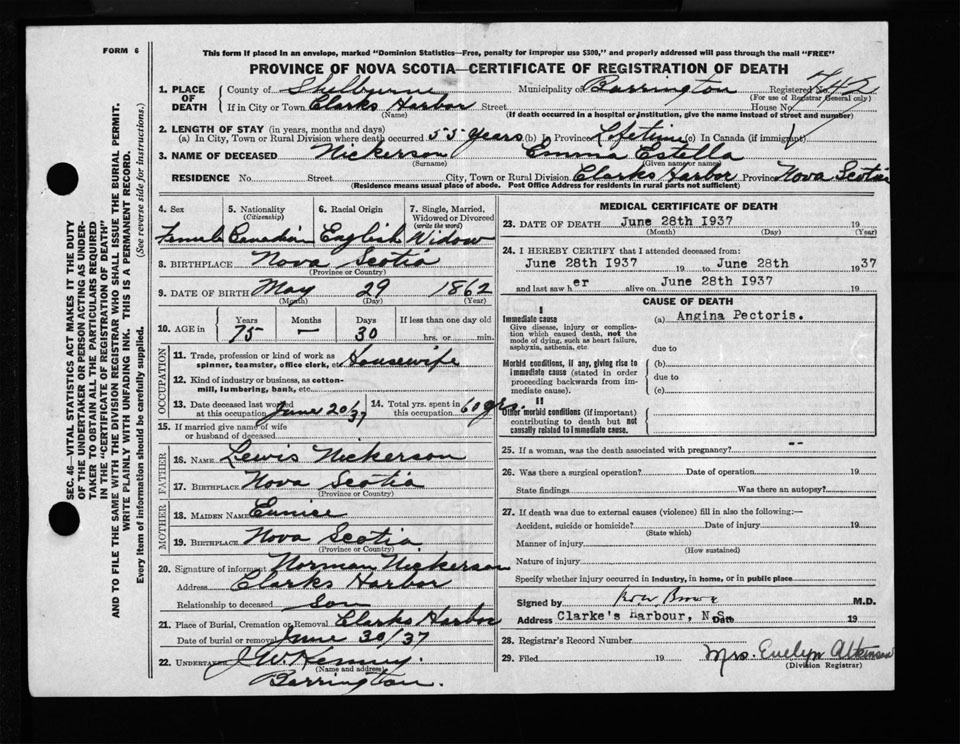 FORM 6
This form if placed in an envelope, marked "Dominion Statistics—Free, penalty for improper use $300," and properly addressed will pass through the mail "FREE"
PROVINCE OF NOVA SCOTIA—CERTIFICATE OF REGISTRATION OF DEATH
1. PLACE OF DEATH
County of Shelburne Municipality of Barrington Registered No. 742
(For use of Registrar General only)
If in City or Town Clarks Harbor Street House No.
(Name) (If death occurred in a hospital or institution, give the name instead of street and number)
2. LENGTH OF STAY (in years, months and days)
(a) In City, Town or Rural Division where death occurred 55 years (b) In Province Lifetime (c) In Canada (if immigrant)
3. NAME OF DECEASED Nickerson Emma Estella
(Surname) (Given name or names)
RESIDENCE No. Street City, Town or Rural Division Clarks Harbor Province Nova Scotia
(Residence means usual place of abode. Post Office Address for residents in rural parts not sufficient)
4. Sex 5. Nationality (Citizenship) 6. Racial Origin 7. Single, Married, Widowed or Divorced (write the word)
Female Canadian English Widow
8. BIRTHPLACE Nova Scotia
(Province or Country)
9. DATE OF BIRTH May 29 1862
(Month) (Day) (Year)
10. AGE in Years Months Days If less than one day old
75 — 30 hrs. or min.
OCCUPATION
11. Trade, profession or kind of work as spinner, teamster, office clerk, etc. Housewife
12. Kind of industry or business, as cotton-mill, lumbering, bank, etc.
13. Date deceased last worked at this occupation June 20/37
14. Total yrs. spent in this occupation 60 yrs.
15. If married give name of wife or husband of deceased
FATHER
16. NAME Lewis Nickerson
17. BIRTHPLACE Nova Scotia
(Province or Country)
MOTHER
18. MAIDEN NAME Eunice
19. BIRTHPLACE Nova Scotia
(Province or Country)
20. Signature of informant Norman Nickerson
Address Clarks Harbor
Relationship to deceased Son
21. Place of Burial, Cremation or Removal Clarks Harbor
Date of burial or removal June 30/37
22. UNDERTAKER J.W. Kenney.
(Name and address)
Barrington.
MEDICAL CERTIFICATE OF DEATH
23. DATE OF DEATH June 28th 1937 19
(Month) (Day) (Year)
24. I HEREBY CERTIFY that I attended deceased from:
June 28th 1937 19 to June 28th 1937
and last saw her alive on June 28th 1937
CAUSE OF DEATH
I
Immediate cause (a) Angina Pectoris.
Give disease, injury or complication which caused death, not the mode of dying, such as heart failure, asphyxia, asthenia, etc.
due to
Morbid conditions, if any, giving rise to immediate cause (stated in order proceeding backwards from immediate cause).
(b)
due to
(c)
II
Other morbid conditions (if important) contributing to death but not causally related to immediate cause.
25. If a woman, was the death associated with pregnancy? --
26. Was there a surgical operation? Date of operation 19
State findings Was there an autopsy?
27. If death was due to external causes (violence) fill in also the following:—
Accident, suicide or homicide? Date of injury 19
(State which)
Manner of injury
(How sustained)
Nature of injury
Specify whether injury occurred in industry, in home, or in public place
Signed by Brown M.D.
Address Clarke's Harbour, N.S. Date 19
28. Registrar's Record Number
29. Filed 19 Mrs. Evelyn Atkinson
(Division Registrar)
SEC. 46—VITAL STATISTICS ACT MAKES IT THE DUTY
OF THE UNDERTAKER OR PERSON ACTING AS UNDER-
TAKER TO OBTAIN ALL THE PARTICULARS REQUIRED
IN THE "CERTIFICATE OF REGISTRATION OF DEATH"
AND TO FILE THE SAME WITH THE DIVISION REGISTRAR WHO SHALL ISSUE THE BURIAL PERMIT.
WRITE PLAINLY WITH UNFADING INK. THIS IS A PERMANENT RECORD.
Every item of information should be carefully supplied. (See reverse side for instructions.)